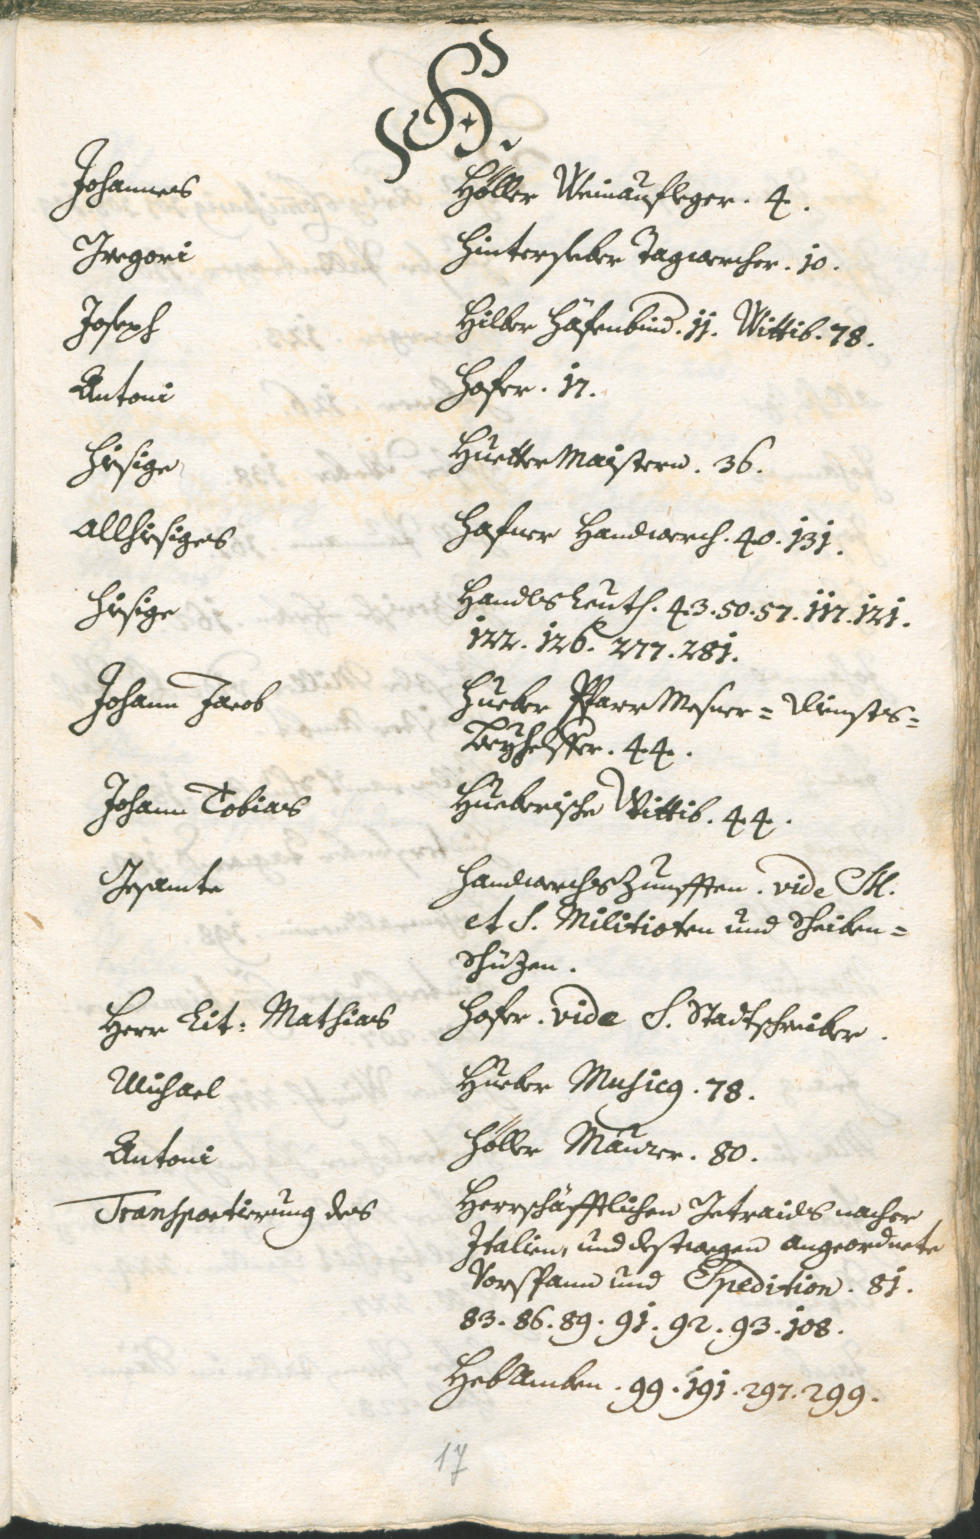 H.
Johannes Höller Weinaufleger. 4.
Gregori Hinterleber Tagwercher. 10.
Joseph Hilber Häfenbind. 11. Wittib. 78.
Antoni Hofer. 17.
Hiesige Huetter Maistern. 36.
Allhiesiges Hafner Handwerch. 40. 131.
Hiesige Handls Leuth. 43. 50. 57. 117. 121.
122. 126. 277. 281.
Johann Jacob Hueber Pfarr Mesner= Diensts=
Beyhelffer. 44.
Johann Tobias Hueberische Wittib. 44.
Gesamte Handwerchs Zunfften. vide M.
et S. Militioten und Scheiben=
Schüzen.
Herr Lit: Mathias Hofer. vide S. Stadtschreiber.
Michael Hueber Musicg. 78.
Antoni Höller Maurer. 80.
Transportierung des Herrschäfftlichen Getraids nacher
Italien, und destwegen angeordnete
Vorspann und Spedition. 81.
83. 86. 89. 91. 92. 93. 108.
Heb Amben. 99. 191. 297. 299.
17